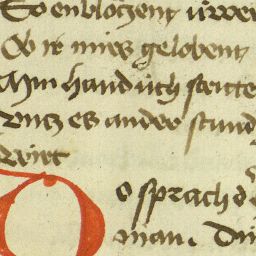 So enblozent uwer
Ob ir mirs gelobent
Min hand uch
Untz es ander stund
Wirt
Do sprach d
man. Du